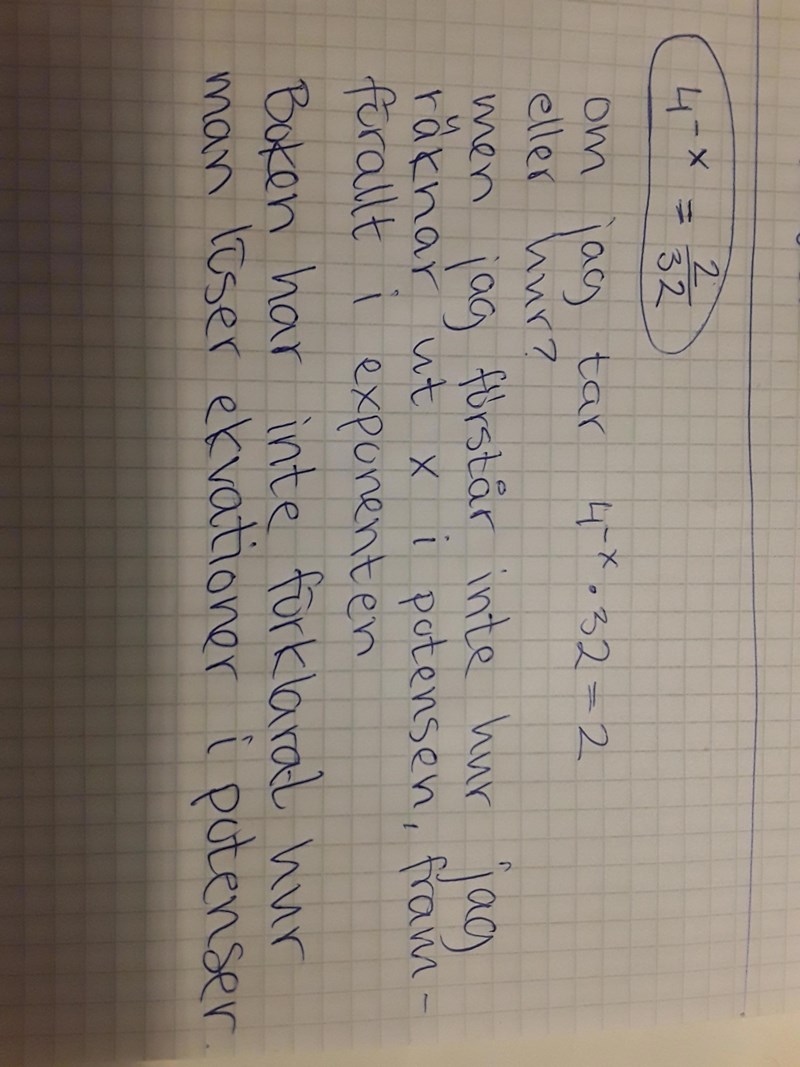 4^-x = 2/32
om jag tar 4^-x · 32 = 2
eller hur?
men jag förstår inte hur jag
räknar ut x i potensen, fram-
förallt i exponenten
Boken har inte förklarat hur
man löser ekvationer i potenser.